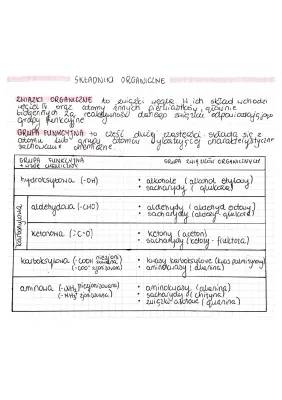 SKŁADNIKI ORGANICZNE
ZWIĄZKI ORGANICZNE to związki węgla. W ich skład wchodzi
oraz atomy innych pierwiastków, głównie
biogennych. Za reaktywność danego związku odpowiadają jego
grupy funkcyjne
GRUPA FUNKCYJNA to część dużej cząsteczki składa się z
atomu lub grupy atomów wykazującej charakterystyczne
zachowanie chemiczne
GRUPA FUNKCYJNA
+ wzór chemiczny
GRUPA ZWIĄZKÓW ORGANICZNYCH
hydroksylowa (-OH)
• alkohole (alkohol etylowy)
• sacharydy (glukoza)
karbonylowa
aldehydowa (-CHO)
• aldehydy (aldehyd octowy)
• sacharydy (aldozy: glukoza)
ketonowa (C-O)
• ketony (aceton)
• sacharydy (ketozy - fruktoza)
karboksylowa (-COOH niezjonizowana)
(-COO⁻ zjonizowana)
• kwasy karboksylowe (kwas palmitynowy)
• aminokwasy (alanina)
aminowa (-NH₂ niezjonizowana)
(-NH₃⁺ zjonizowana)
• aminokwasy (alanina)
• sacharydy (chityna)
• związki azotowe (guanina)